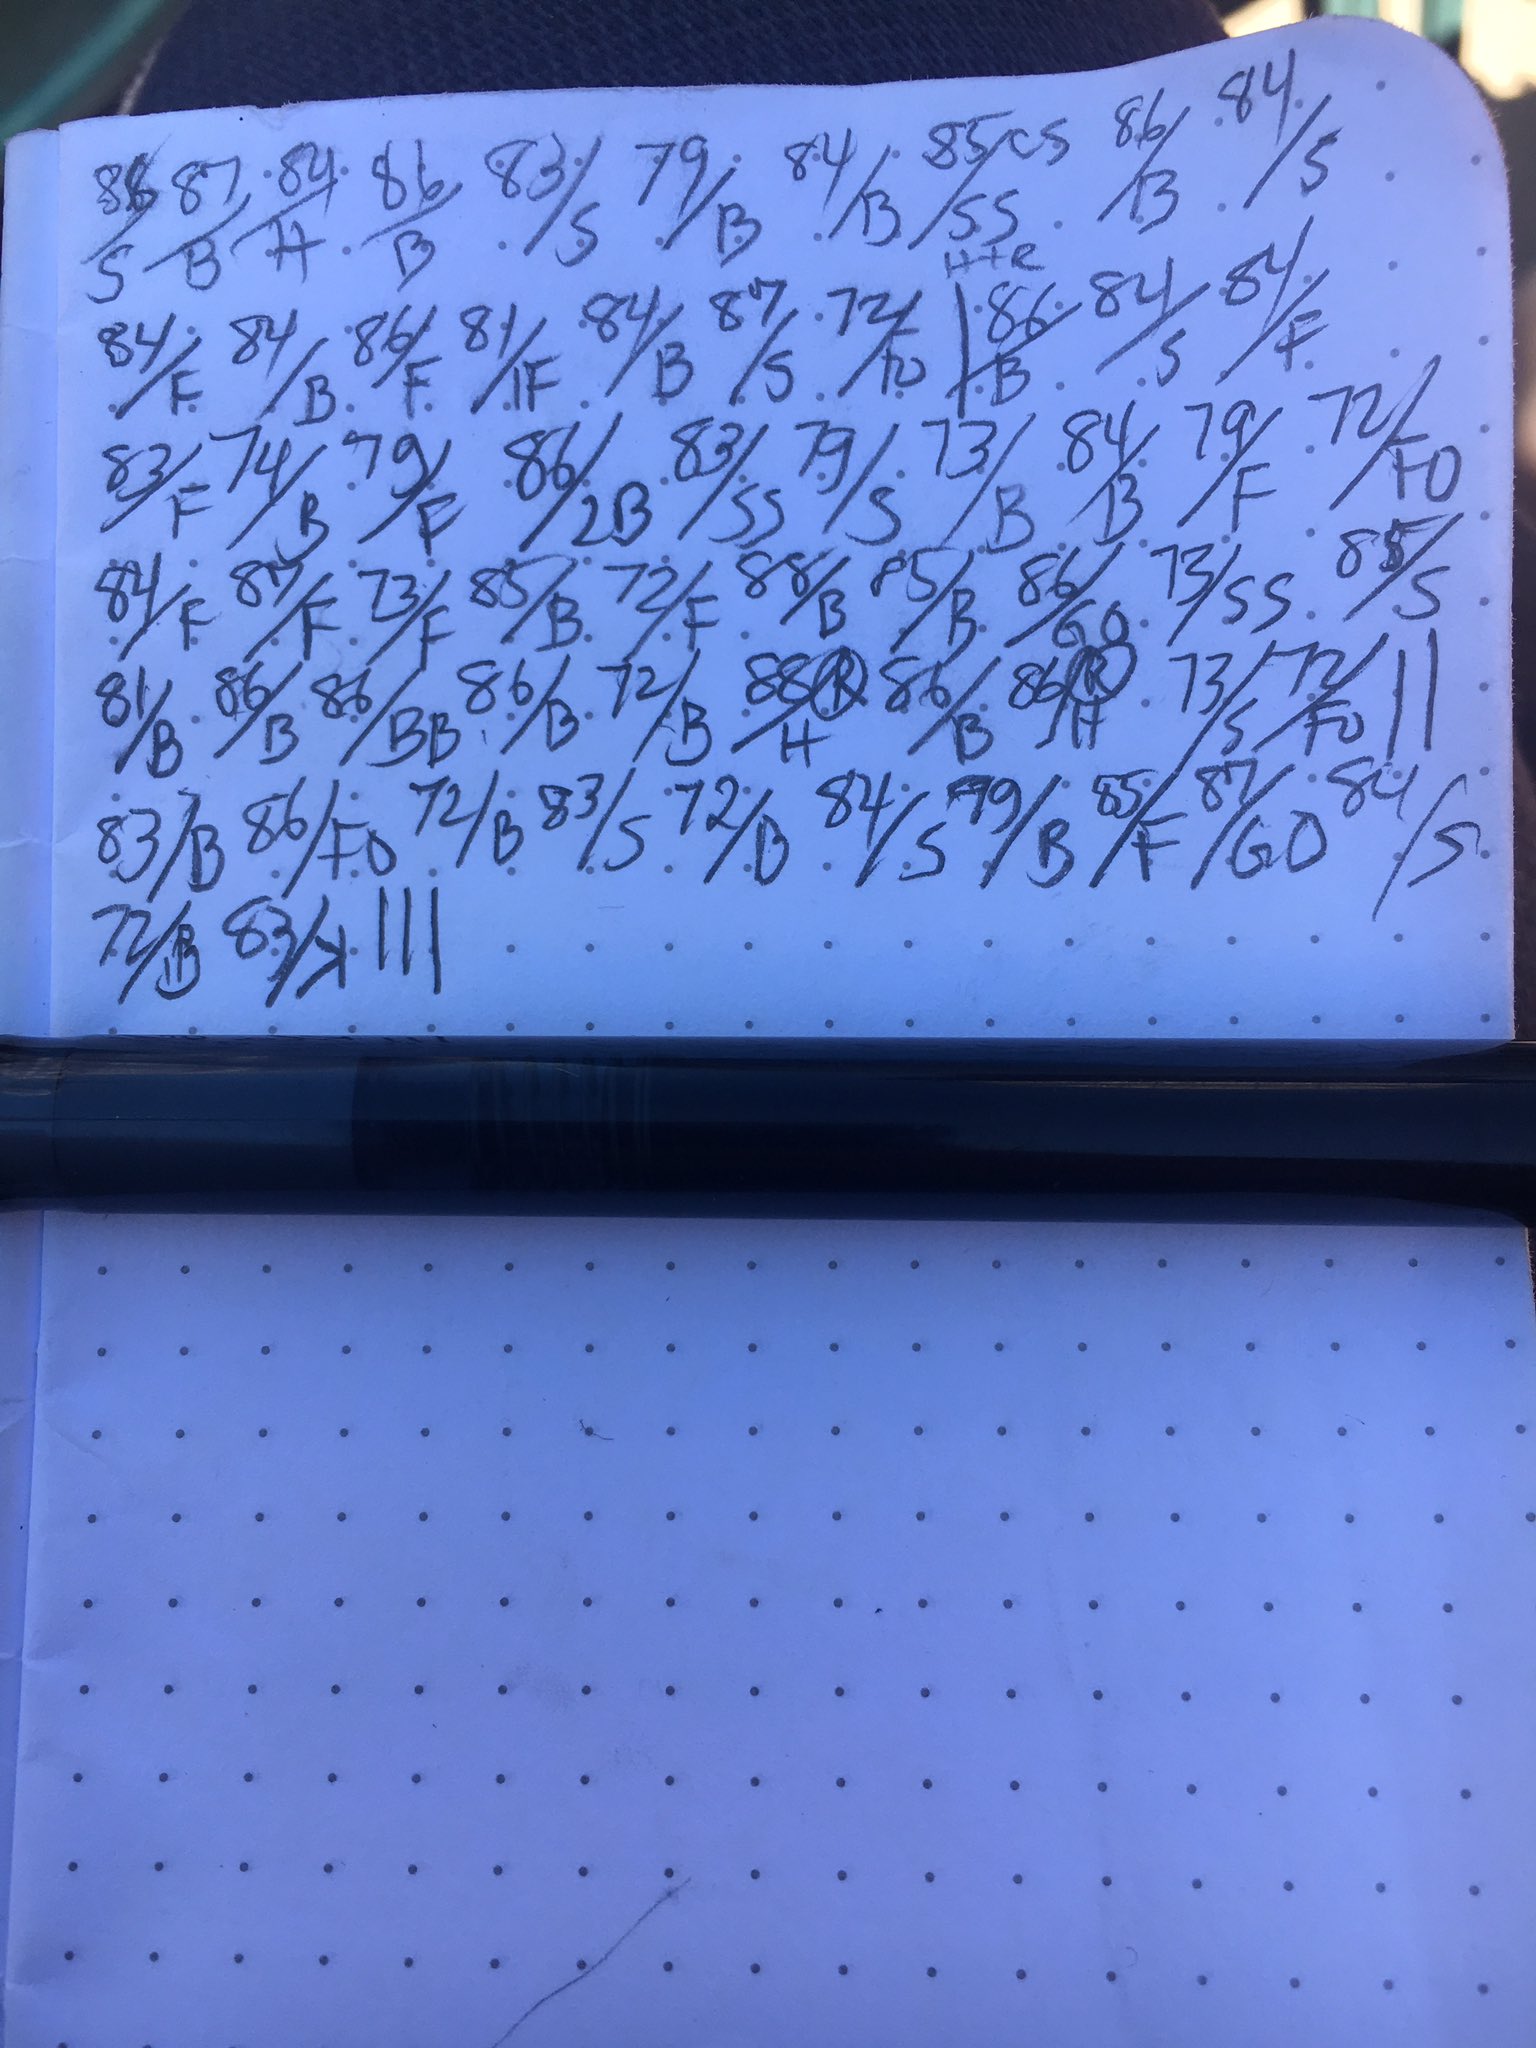 86/S 87/B 84/H 86/B 83/S 79/B 84/B 85/CS SS 86/B 84/S
H++R
84/F 84/B 86/F 81/1F 84/B 87/S 72/FO | 86/B 84/S 84/F
83/F 74/B 79/F 86/2B 83/SS 79/S 73/B 84/B 79/F 72/FO
84/F 87/F 73/F 85/B 72/F 88/B 85/B 86/GO 73/SS 85/S
81/B 86/B 86/BB 86/B 72/B 88 R/H 86/B 86 R/H 73/S 72/FO ||
83/B 86/FO 72/B 83/S 72/B 84/S 79/B 85/F 87/GO 84/S
72/B 83/K |||